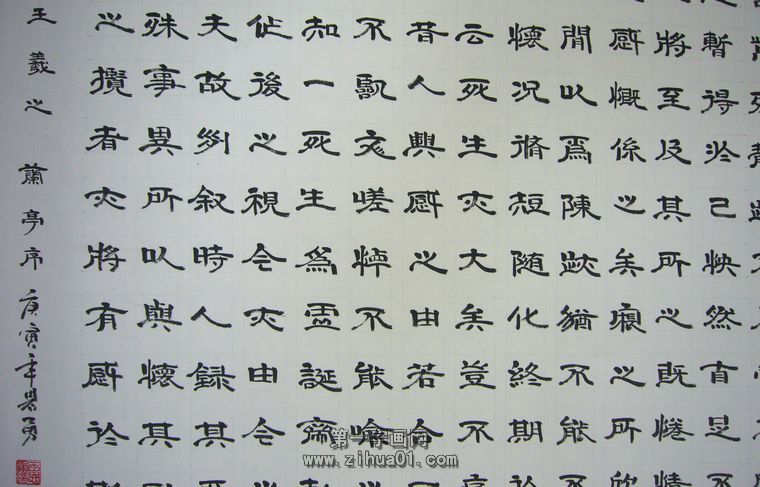 暫得於己怏然自足不
將至及其所之既惓情
感慨係之矣之所欣
間以為陳跡猶不能不
懷況脩短隨化終期於
云死生亦大矣豈不
昔人興感之由若合
不臨文嗟悼不能喻
知一死生為虛誕齊
作後之視今亦由今之
夫故列敘時人錄其
殊事異所以興懷其
之攬者亦將有感於
王羲之 蘭亭序 庚寅年 勇
第一字画网
www.zihua01.com